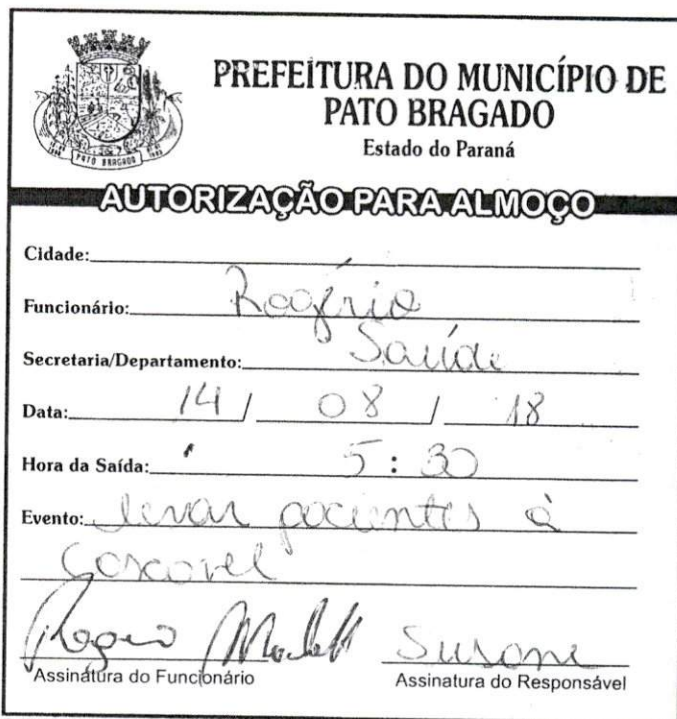 PREFEITURA DO MUNICÍPIO DE
PATO BRAGADO
Estado do Paraná
PATO BRAGADO
AUTORIZAÇÃO PARA ALMOÇO
Cidade:
Funcionário: Rogério
Secretaria/Departamento: Saúde
Data: 14 / 08 / 18
Hora da Saída: 5 : 30
Evento: levar pacientes à
Cascavel
Rogerio
Susane
Assinatura do Funcionário Assinatura do Responsável